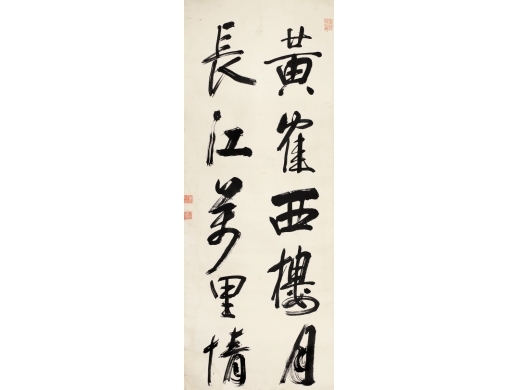 黃隺西樓月
長江萬里情